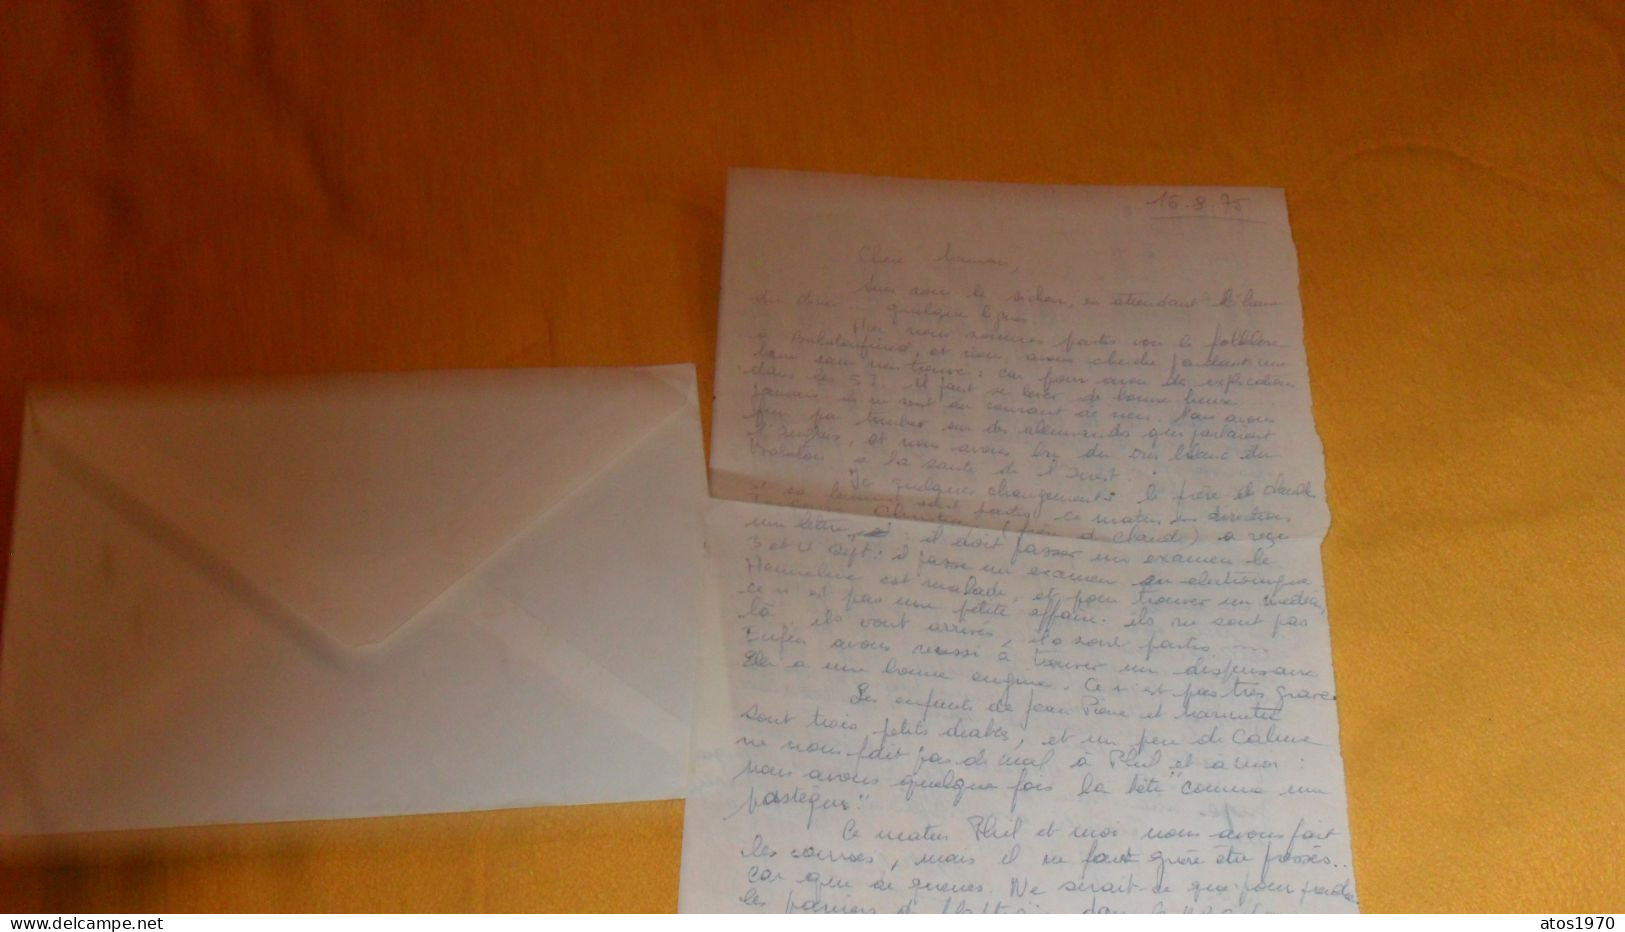 15.8.75
Chère Maman,
en attendant l'heure
du dîner quelques lignes.
Hier nous sommes partis voir le folklore
à Balatonfüred, et rien, avons cherché pendant une
heure sans rien trouver : car pour avoir des explications
dans les Il faut se lever de bonne heure
jamais ils ne sont au courant de rien. Nous avons
fini par tomber sur des allemands qui parlaient
l'anglais, et nous avons bu du vin blanc du
Balaton à la santé de l'
Ici quelques changements : le frère et
et sa femme sont partis ce matin en direction
Christian (frère de Claude) a reçu
une lettre : il doit passer un examen le
3 et 4 Sept : il passe un examen en électronique
est malade, et pour trouver un médecin,
ce n'est pas une petite affaire. ils ne sont pas
là, ils vont arriver, ils sont partis .....
Enfin avons réussi à trouver un dispensaire
Elle a une bonne angine. Ce n'est pas très grave.
Les enfants de Jean Pierre et
sont trois petits diables, et un peu de calme
ne nous fait pas de mal à Phil et à moi :
nous avons quelque fois la tête "comme une
pastèque"
Ce matin Phil et moi nous avons fait
les courses, mais il ne faut guère être pressés..
car que de queues. Ne serait-ce que pour prendre
les paniers
delcampe.net
atos1970